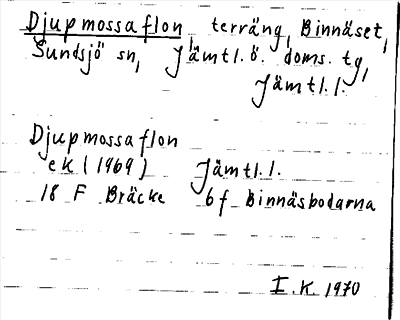 Djupmossaflon terräng, Binnäset,
Sundsjö sn, Jämtl.ö. doms. tg,
Jämtl. l.
Djupmossaflon
ek (1969) Jämtl. l.
18 F Bräcke 6f Binnäsbodarna
I.K. 1970